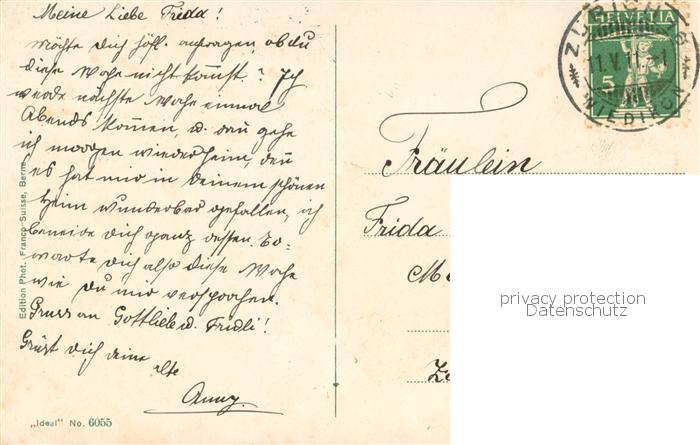 Meine Liebe Frida!
Möchte dich höfl. anfragen, ob du
diese Woche nicht kommst? Ich
werde nächste Woche einmal
Abends kommen, u. dann gehe
ich morgen wieder heim, denn
es hat mir in deinem schönen
Heim wunderbar gefallen, ich
beneide dich ganz dessen. Er=
warte dich also diese Woche
wie du mir versprochen.
Gruss an Gottlieb u. Fridli!
Grüst dich deine
alte
Anny.
„Ideal" No. 6055
Edition Phot. Franco-Suisse, Berne
HELVETIA
5
ZÜRICH 6
11.V.11.
WIEDIKON
Fräulein
Frida
privacy protection
Datenschutz